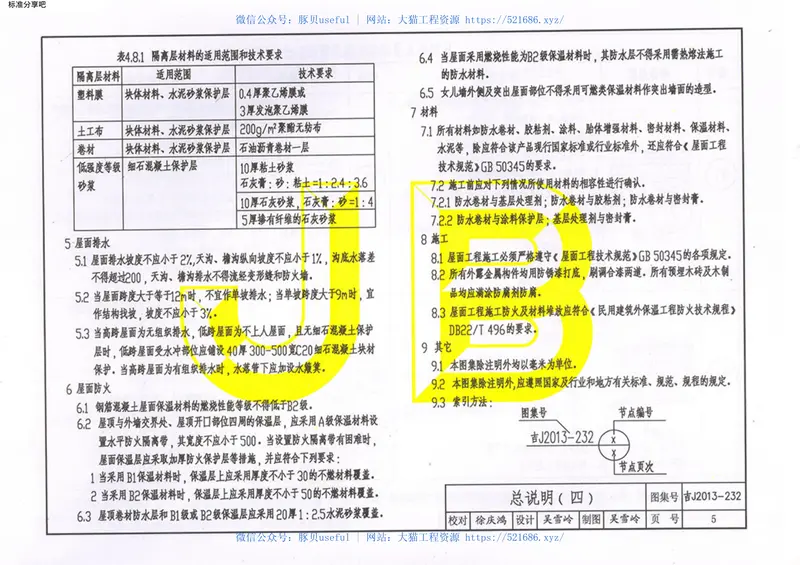 标准分享吧
微信公众号：豚贝useful | 网站：大猫工程资源 https://521686.xyz/
表4.8.1 隔离层材料的适用范围和技术要求
隔离层材料 适用范围 技术要求
塑料膜 块体材料、水泥砂浆保护层 0.4厚聚乙烯膜或
3厚发泡聚乙烯膜
土工布 块体材料、水泥砂浆保护层 200g/m²聚酯无纺布
卷材 块体材料、水泥砂浆保护层 石油沥青卷材一层
低强度等级 细石混凝土保护层 10厚粘土砂浆
砂浆 石灰膏：砂：粘土=1：2.4：3.6
10厚石灰砂浆，石灰膏：砂=1：4
5厚掺有纤维的石灰砂浆
5 屋面排水
5.1 屋面排水坡度不应小于2%,天沟、檐沟纵向坡度不应小于1%，沟底水落差
不得超过200，天沟、檐沟排水不得流经变形缝和防火墙。
5.2 当屋面跨度大于等于12m时，不宜作单坡排水；当单坡跨度大于9m时，宜
作结构找坡，坡度不应小于3%。
5.3 当高跨屋面为无组织排水，低跨屋面为不上人屋面，且无细石混凝土保护
层时，低跨屋面受水冲部位应铺设40厚300-500宽C20细石混凝土块材
保护。当高跨屋面为有组织排水时，水落管下应加设水簸箕。
6 屋面防火
6.1 钢筋混凝土屋面保温材料的燃烧性能等级不得低于B2级。
6.2 屋顶与外墙交界处、屋顶开口部位四周的保温层，应采用A级保温材料设
置水平防火隔离带，其宽度不应小于500。当设置防火隔离带有困难时，
屋面保温层应采取加厚防火保护层等措施，并应符合下列要求：
1 当采用B1保温材料时，保温层上应采用厚度不小于30的不燃材料覆盖。
2 当采用B2保温材料时，保温层上应采用厚度不小于50的不燃材料覆盖。
6.3 屋顶卷材防水层和B1级或B2级保温层应采用20厚1：2.5水泥砂浆覆盖。
6.4 当屋面采用燃烧性能为B2级保温材料时，其防水层不得采用需热熔法施工
的防水材料。
6.5 女儿墙外侧及突出屋面部位不得采用可燃类保温材料作突出墙面的造型。
7 材料
7.1 所有材料如防水卷材、胶粘剂、涂料、胎体增强材料、密封材料、保温材料、
水泥等，除应符合该产品现行国家标准或行业标准外，还应符合《屋面工程
技术规范》GB 50345的要求。
7.2 施工前应对下列情况所使用材料的相容性进行确认。
7.2.1 防水卷材与基层处理剂；防水卷材与胶粘剂；防水卷材与密封膏。
7.2.2 防水卷材与涂料保护层；基层处理剂与密封膏。
8 施工
8.1 屋面工程施工必须严格遵守《屋面工程技术规范》GB 50345的各项规定。
8.2 所有外露金属构件均用防锈漆打底，刷调合漆两道。所有预埋木砖及木制
品均应满涂防腐剂防腐。
8.3 屋面工程施工防火及材料堆放应符合《民用建筑外保温工程防火技术规程》
DB22/T 496的要求。
9 其它
9.1 本图集除注明外均以毫米为单位。
9.2 本图集除注明外,应遵照国家及行业和地方有关标准、规范、规程的规定。
9.3 索引方法：
图集号 节点编号
吉J2013-232 x
x
节点页次
JB
总说明(四) 图集号 吉J2013-232
校对 徐庆鸿 设计 吴雪岭 制图 吴雪岭 页 号 5
微信公众号：豚贝useful | 网站：大猫工程资源 https://521686.xyz/